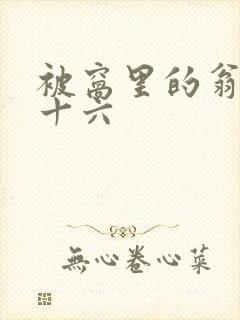 被窝里的翁
十六
無心卷心菜